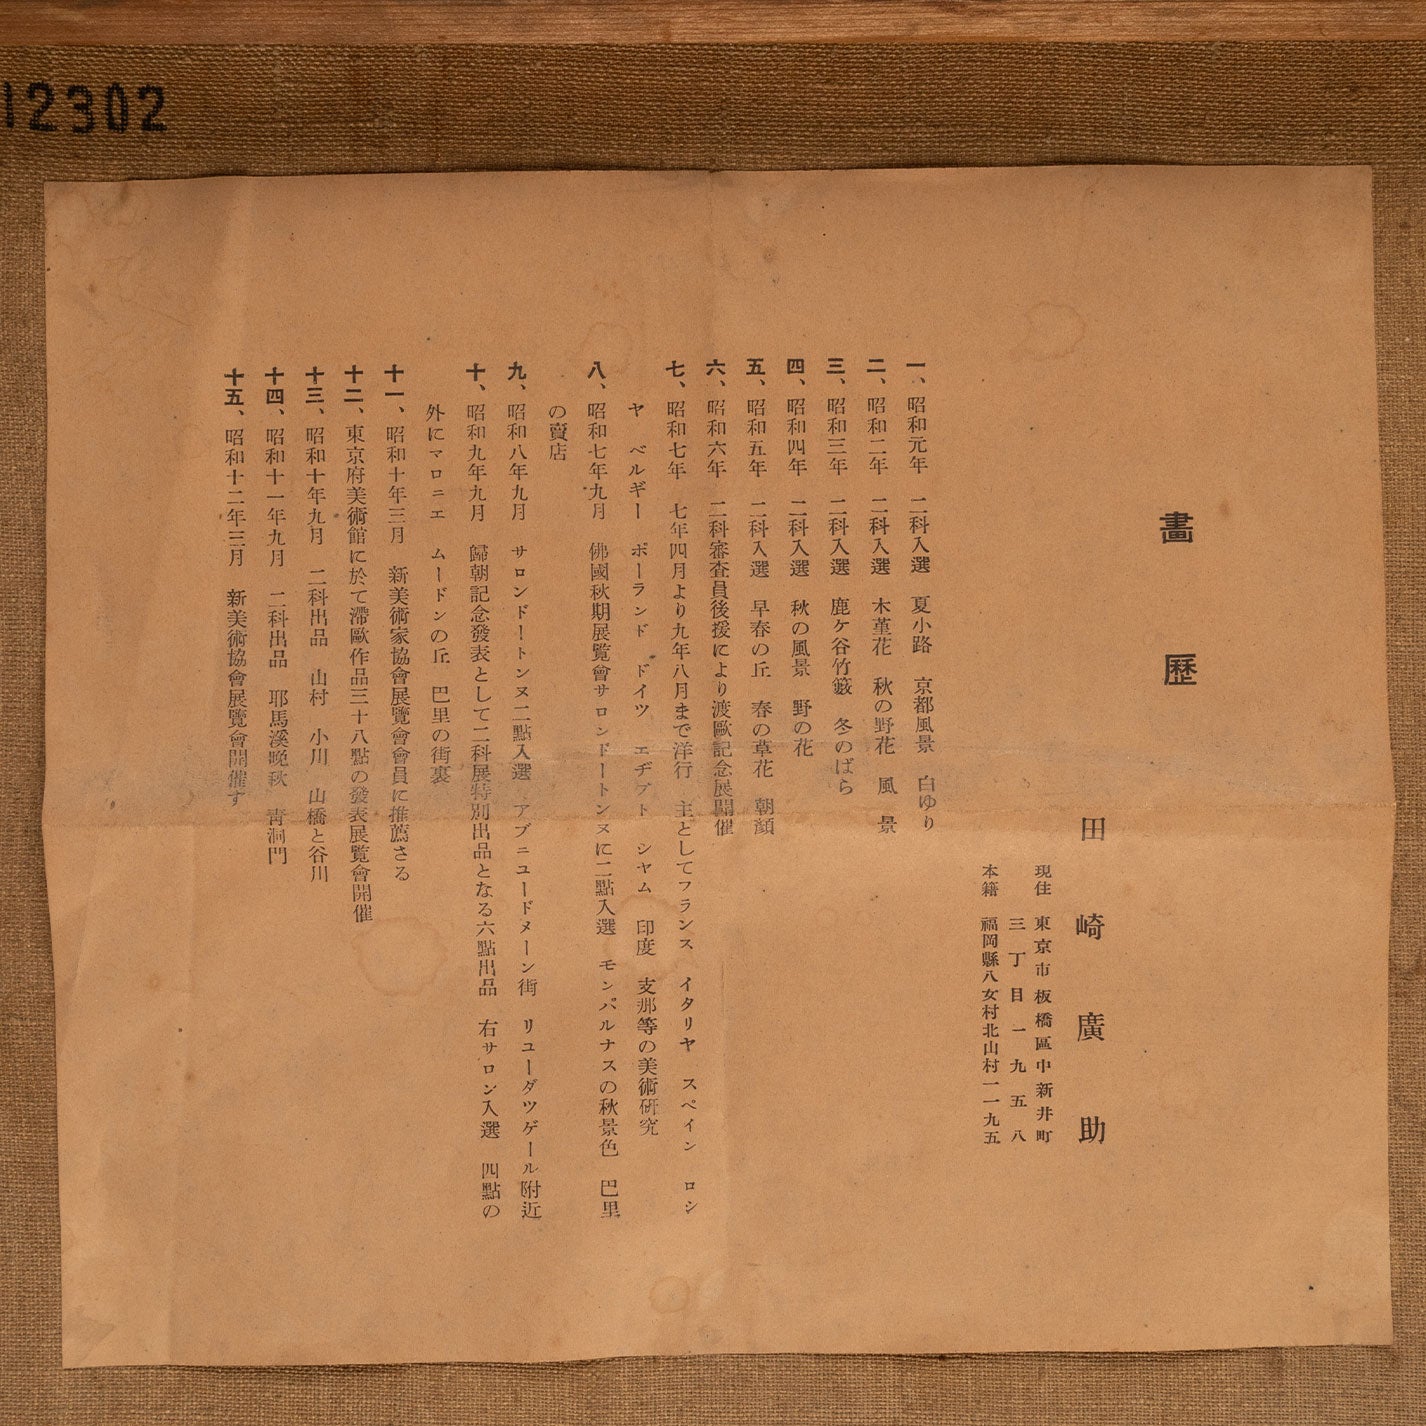 12302
畫歷
田崎廣助
現住 東京市板橋區中新井町
三丁目一九五八
本籍 福岡縣八女村北山村一一九五
一、昭和元年 二科入選 夏小路 京都風景 白ゆり
二、昭和二年 二科入選 木菫花 秋の野花 風景
三、昭和三年 二科入選 鹿ケ谷竹籔 冬のばら
四、昭和四年 二科入選 秋の風景 野の花
五、昭和五年 二科入選 早春の丘 春の草花 朝顏
六、昭和六年 二科審査員後援により渡歐記念展開催
七、昭和七年 七年四月より九年八月まで洋行 主としてフランス イタリヤ スペイン ロシ
ヤ ベルギー ポーランド ドイツ エヂプト シヤム 印度 支那等の美術研究
八、昭和七年九月 佛國秋期展覽會サロンドートンヌに二點入選 モンパルナスの秋景色 巴里
の賣店
九、昭和八年九月 サロンドートンヌ二點入選 アブニユードメーン街 リユーダツゲール附近
十、昭和九年九月 歸朝記念發表として二科展特別出品となる六點出品 右サロン入選 四點の
外にマロニエ ムードンの丘 巴里の街裏
十一、昭和十年三月 新美術家協會展覽會會員に推薦さる
十二、東京府美術館に於て滯歐作品三十八點の發表展覽會開催
十三、昭和十年九月 二科出品 山村 小川 山橋と谷川
十四、昭和十一年九月 二科出品 耶馬溪晩秋 靑洞門
十五、昭和十二年三月 新美術協會展覽會開催す